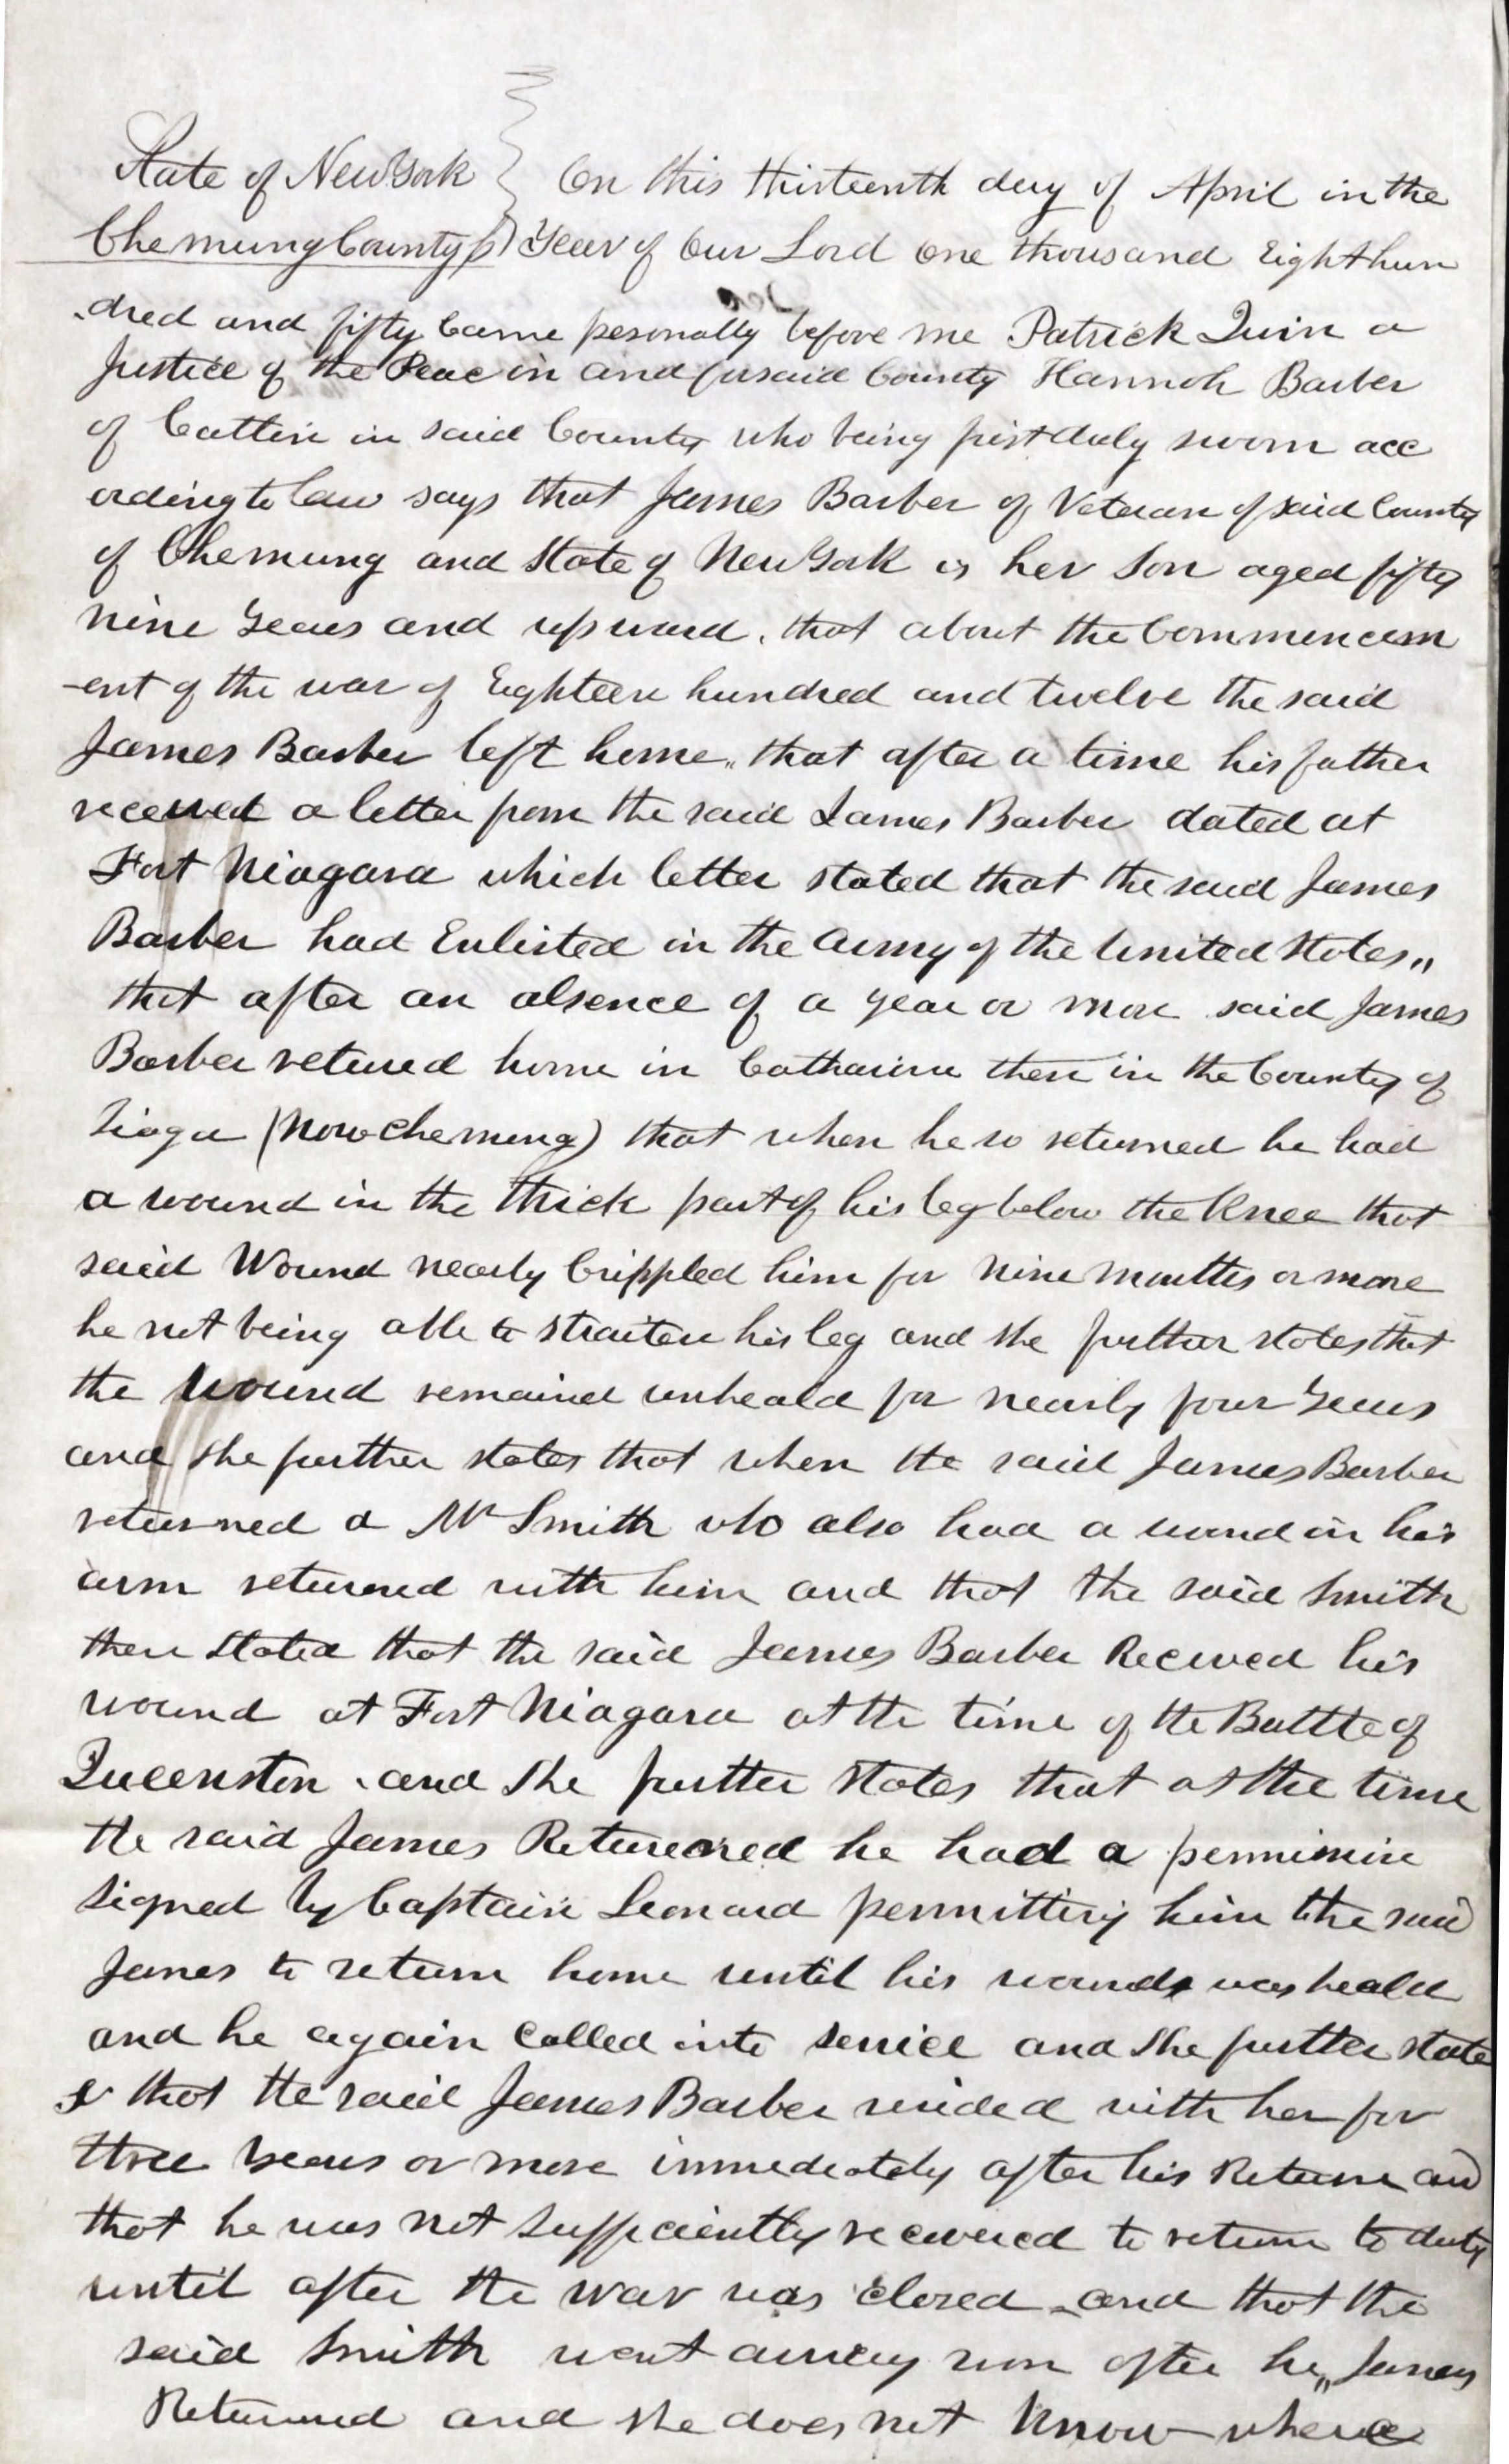 State of New York } On this thirteenth day of April in the
Chemung County ss } Year of Our Lord one thousand Eight hun
-dred and fifty Came pesonally before me Patrick Quin a
Justice of the Peac in and for said County Hannoh Barber
of Catlin in said County who being first duly sworn acc
ording to law says that James Barber of Veteran of said County
of Chemung and State of New York is her Son aged fifty
nine Years and upward. that about the Commencem
-ent of the war of Eighteen hundred and twelve the said
James Barber left home,, that after a time his father
received a letter from the said James Barber dated at
Fort Niagara which letter stated that the said James
Barber had Enlisted in the Army of the United States,,
that after an absence of a year or more said James
Barber retured home in Catharine then in the County of
Tioga (Now Chemung) that when he so returned he had
a wound in the thick part of his leg below the Knee that
said Wound nearly Crippled him for nine months or more
he not being able to straiten his leg and she further states that
the wound remained unheald for nearly four Years
and she further states that when the said James Barber
returned a Mr Smith who also had a wound in his
arm returned with him and that the said Smith
then stated that the said James Barber Recieved his
wound at Fort Niagara at the time of the Battle of
Queenston . and she further states that at the time
the said James Returned he had a
signed by Captain Leonard permitting him the said
James to return home until his wounds was heald
and he again Called into service and she further state
s that the said James Barber resided with her for
three years or more immediately after his Return and
that he was not sufficiently recovered to return to duty
until after the war was closed and that the
said Smith went away soon after he,, James
Returned and she does not Know where